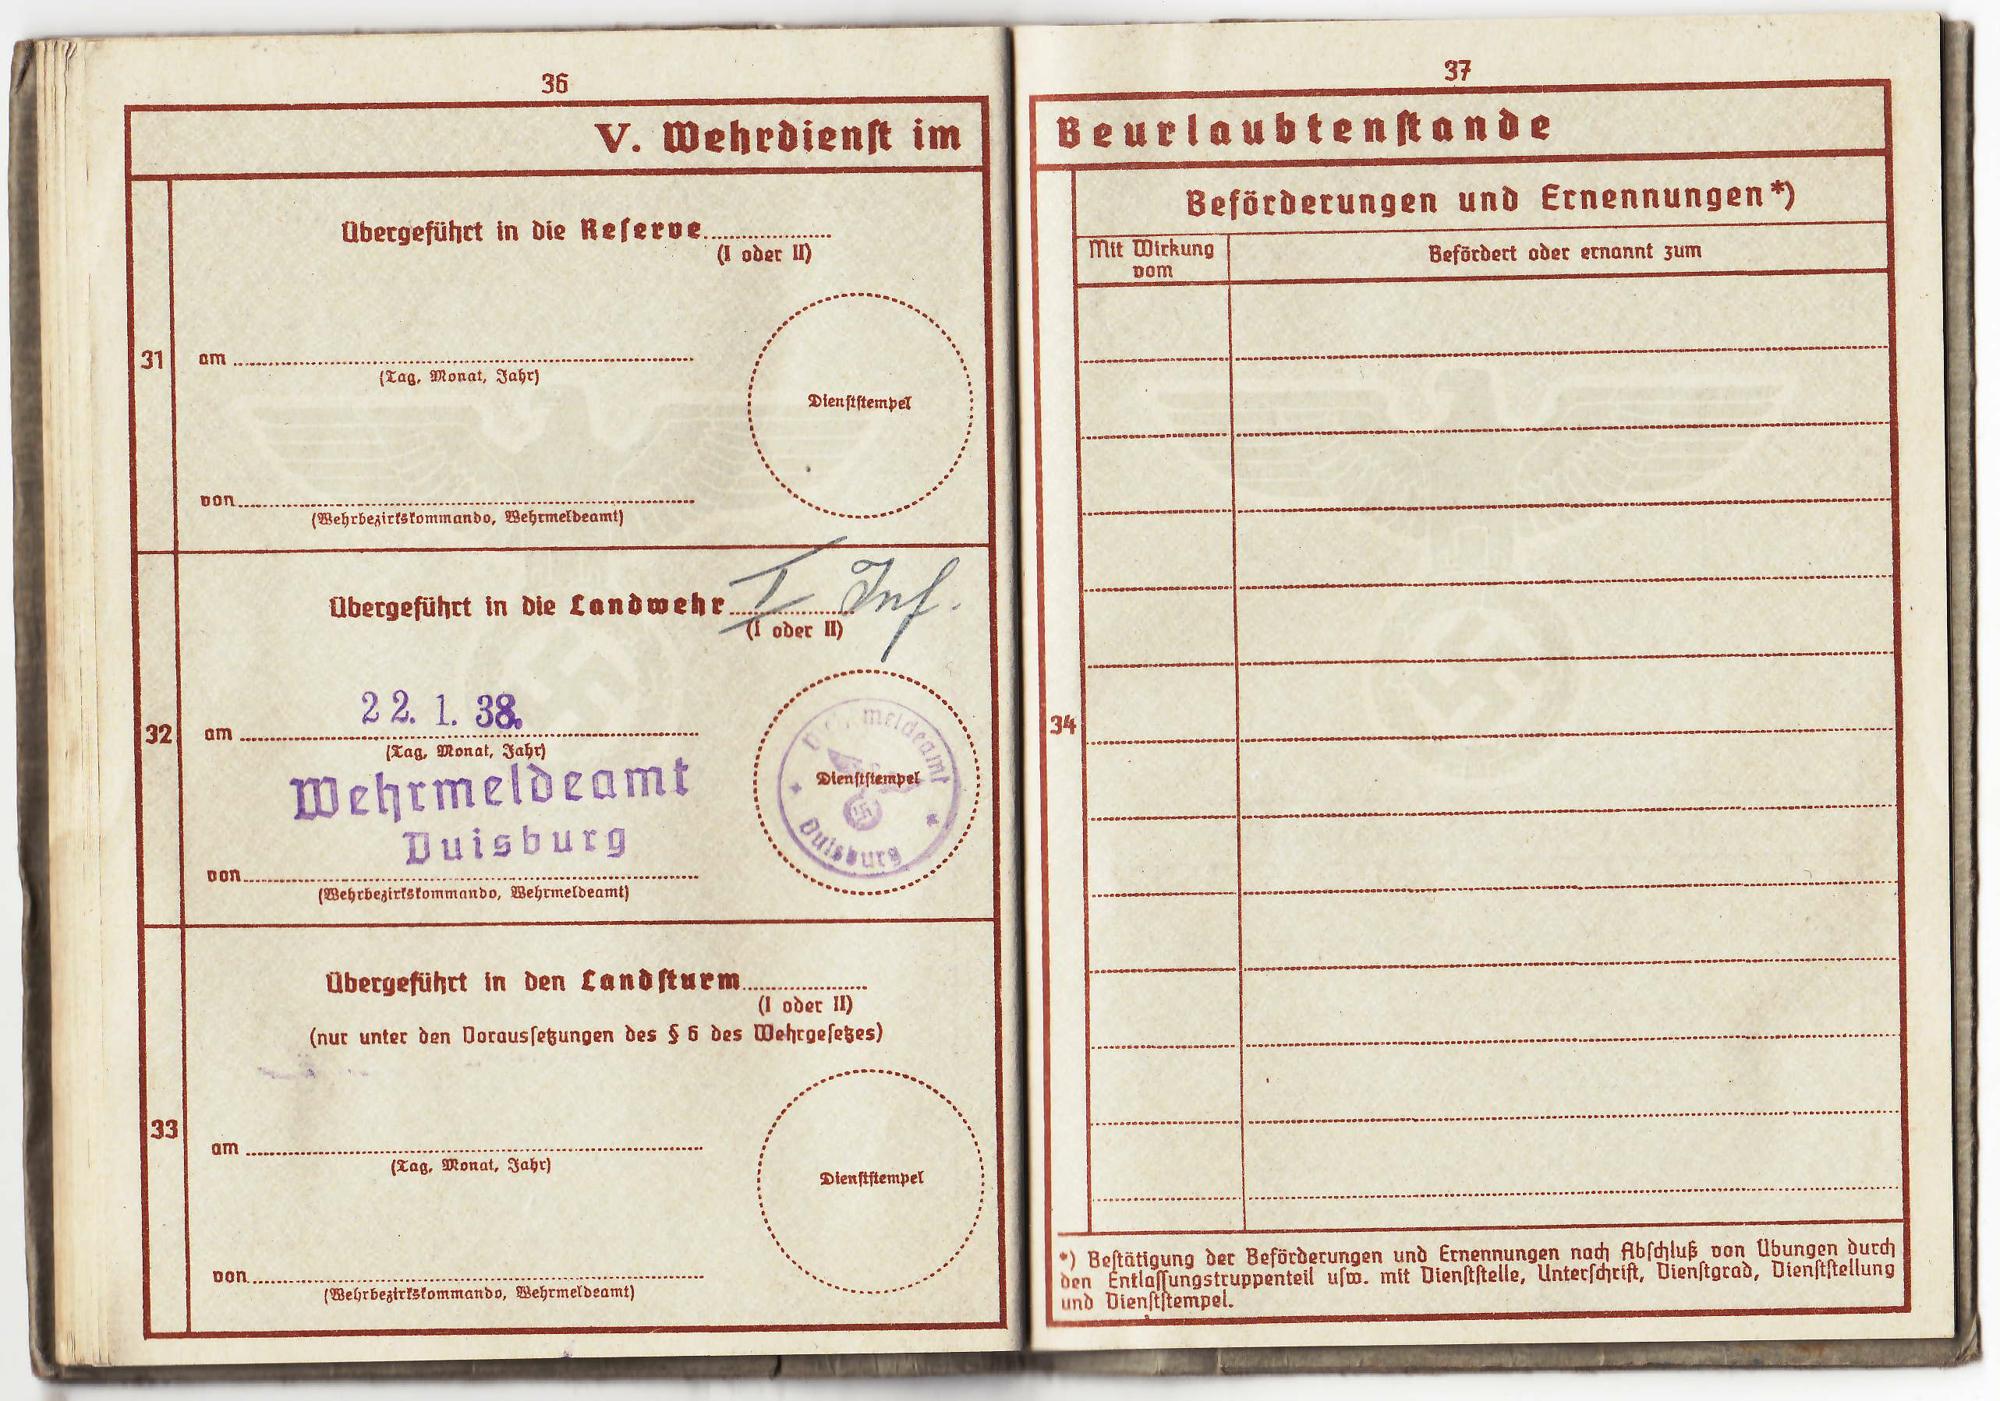 36
V. Wehrdienst im
31
Übergeführt in die Reserve
(I oder II)
am
(Tag, Monat, Jahr)
Dienststempel
von
(Wehrbezirkskommando, Wehrmeldeamt)
32
Übergeführt in die Landwehr I Inf.
(I oder II)
am 22. 1. 38.
(Tag, Monat, Jahr)
Wehrmeldeamt
Duisburg
von
(Wehrbezirkskommando, Wehrmeldeamt)
Wehrmeldeamt
Dienststempel
Duisburg
33
Übergeführt in den Landsturm
(I oder II)
(nur unter den Voraussetzungen des § 6 des Wehrgesetzes)
am
(Tag, Monat, Jahr)
Dienststempel
von
(Wehrbezirkskommando, Wehrmeldeamt)
37
Beurlaubtenstande
34
Beförderungen und Ernennungen*)
Mit Wirkung
vom
Befördert oder ernannt zum
*) Bestätigung der Beförderungen und Ernennungen nach Abschluß von Übungen durch
den Entlassungstruppenteil usw. mit Dienststelle, Unterschrift, Dienstgrad, Dienststellung
und Dienststempel.